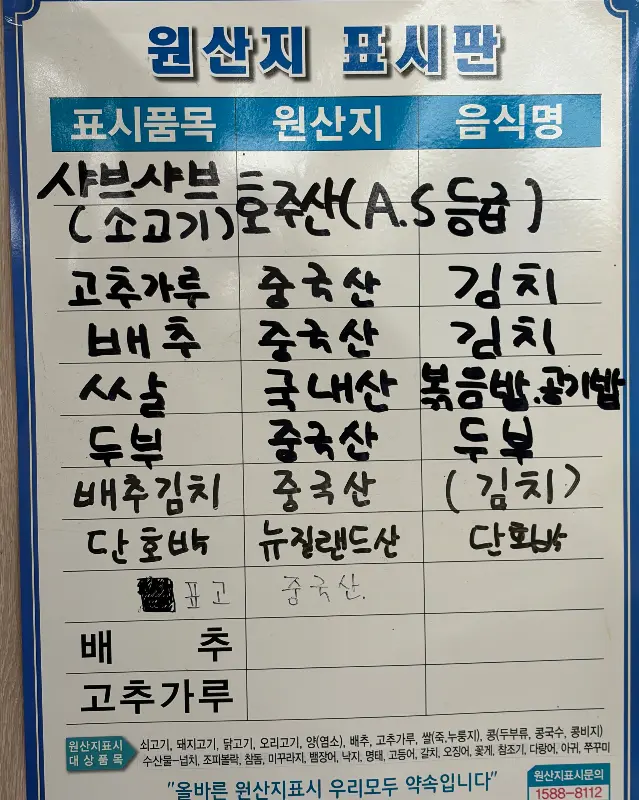 원산지 표시판
표시품목 원산지 음식명
샤브샤브
(소고기) 호주산(A.S등급)
고추가루 중국산 김치
배추 중국산 김치
쌀 국내산 볶음밥.공기밥
두부 중국산 두부
배추김치 중국산 (김치)
단호박 뉴질랜드산 단호박
표고 중국산.
배 추
고추가루
원산지표시
대상품목
쇠고기, 돼지고기, 닭고기, 오리고기, 양(염소), 배추, 고추가루, 쌀(죽,누룽지), 콩(두부류, 콩국수, 콩비지)
수산물-넙치, 조피볼락, 참돔, 미꾸라지, 뱀장어, 낙지, 명태, 고등어, 갈치, 오징어, 꽃게, 참조기, 다랑어, 아귀, 쭈꾸미
"올바른 원산지표시 우리모두 약속입니다"
원산지표시문의
1588-8112